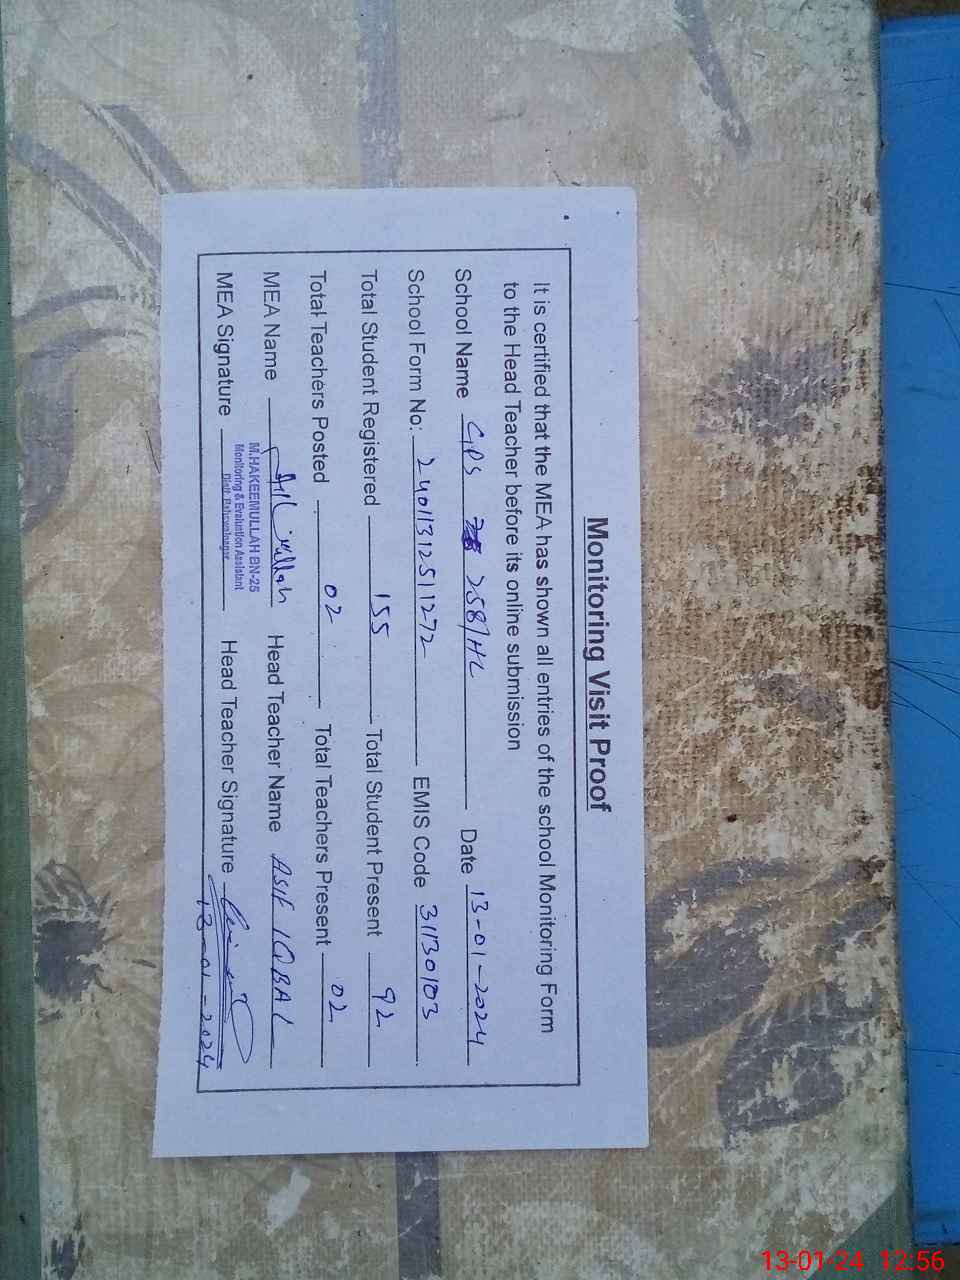 Monitoring Visit Proof
It is certified that the MEA has shown all entries of the school Monitoring Form
to the Head Teacher before its online submission
School Name GPS 258/HL Date 13-01-2024
School Form No: 24011312511272 EMIS Code 31130103
Total Student Registered 155 Total Student Present 92
Total Teachers Posted 02 Total Teachers Present 02
MEA Name Head Teacher Name ASIF IQBAL
MEA Signature Head Teacher Signature
M.HAKEEMULLAH BN-25
Monitoring & Evaluation Assistant
Distt. Bahawalnagar
13-01-2024
13-01-24 12:56